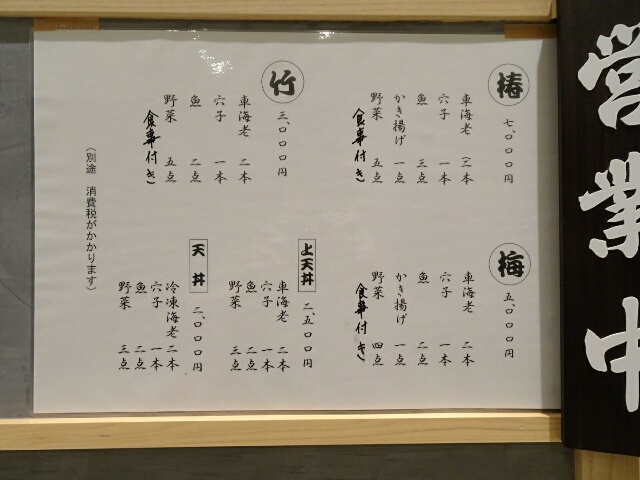 営業中
椿
七、〇〇〇円
車海老 三本
穴子 一本
魚 三点
かき揚げ 一点
野菜 五点
食事付き
梅
五、〇〇〇円
車海老 二本
穴子 一本
魚 二点
かき揚げ 一点
野菜 四点
食事付き
竹
三、〇〇〇円
車海老 二本
穴子 一本
魚 二点
野菜 五点
食事付き
上天丼
二、五〇〇円
車海老 二本
穴子 一本
魚 二点
野菜 三点
天丼
二、〇〇〇円
冷凍海老 二本
穴子 一本
魚 二点
野菜 三点
（別途 消費税がかかります）